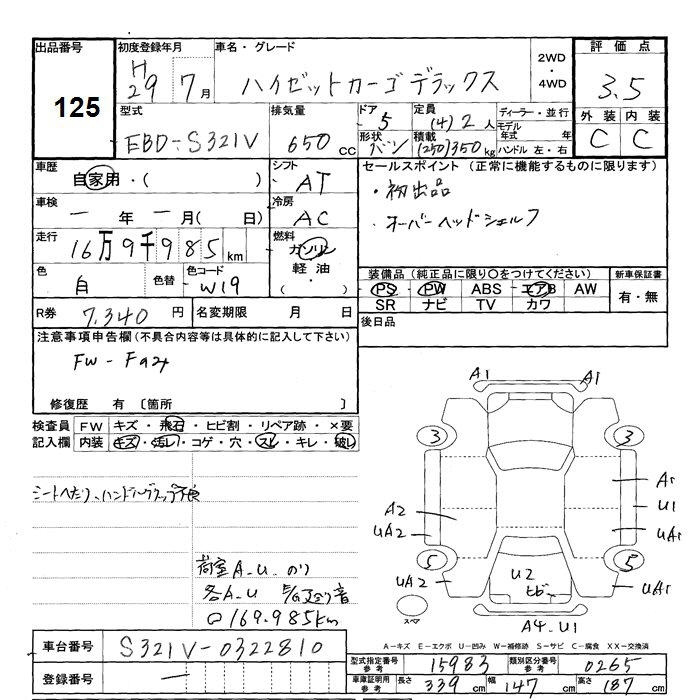 出品番号 初度登録年月 車名・グレード 2WD・4WD 評価点
125 H29 7月 ハイゼットカーゴデラックス 3.5
型式 排気量 ドア 5 定員 (4)2人 ディーラー・並行 外装 内装
EBD-S321V 650cc 形状 バン 積載 (250)350kg モデル年式 年 ハンドル 左・右 C C
車歴 自家用・( ) シフト AT セールスポイント(正常に機能するものに限ります)
車検 ー年ー月( 日) 冷房 AC ・初出品
走行 16万9千985km 燃料 ガソリン 軽油・( ) ・オーバーヘッドシェルフ
色 白 色替 色コード W19 装備品(純正品に限り○をつけてください) 新車保証書
PS PW ABS エアB AW 有・無
SR ナビ TV カワ
R券 7,340円 名変期限 月 日 後日品
注意事項申告欄(不具合内容等は具体的に記入して下さい)
修復歴 有 〔箇所 〕
検査員記入欄 FW キズ・飛石・ヒビ割・リペア跡・×要
内装 キズ・汚レ・コゲ・穴・スレ・キレ・破レ
シートへたり、ハンドルグリップ不良
荷室A.U のり
各A.U
□169.985km
A1 A1
3 3
A2 A1
U1
UA2 UA1
5 5
UA2 U2 ヒビ UA1
スペア
A4.U1
A-キズ E-エクボ U-凹み W-補修跡 S-サビ C-腐食 XX-交換済
車台番号 S321V-0322810
登録番号 ー
型式指定番号 参考 15983 類別区分番号 参考 0265
車庫証明用 参考 長さ 339cm 幅 147cm 高さ 187cm